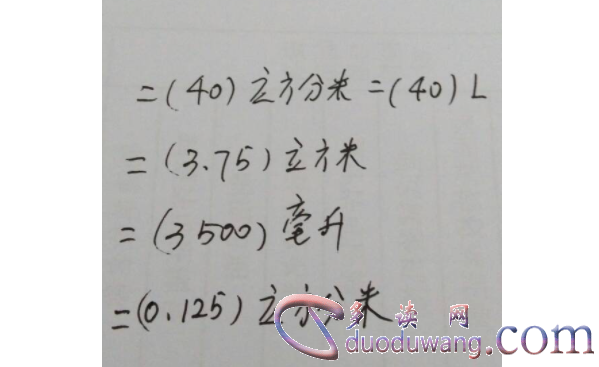 =(40)立方分米=(40)L
=(3.75)立方米
=(3500)毫升
=(0.125)立方分米
多读网
duoduwang.com